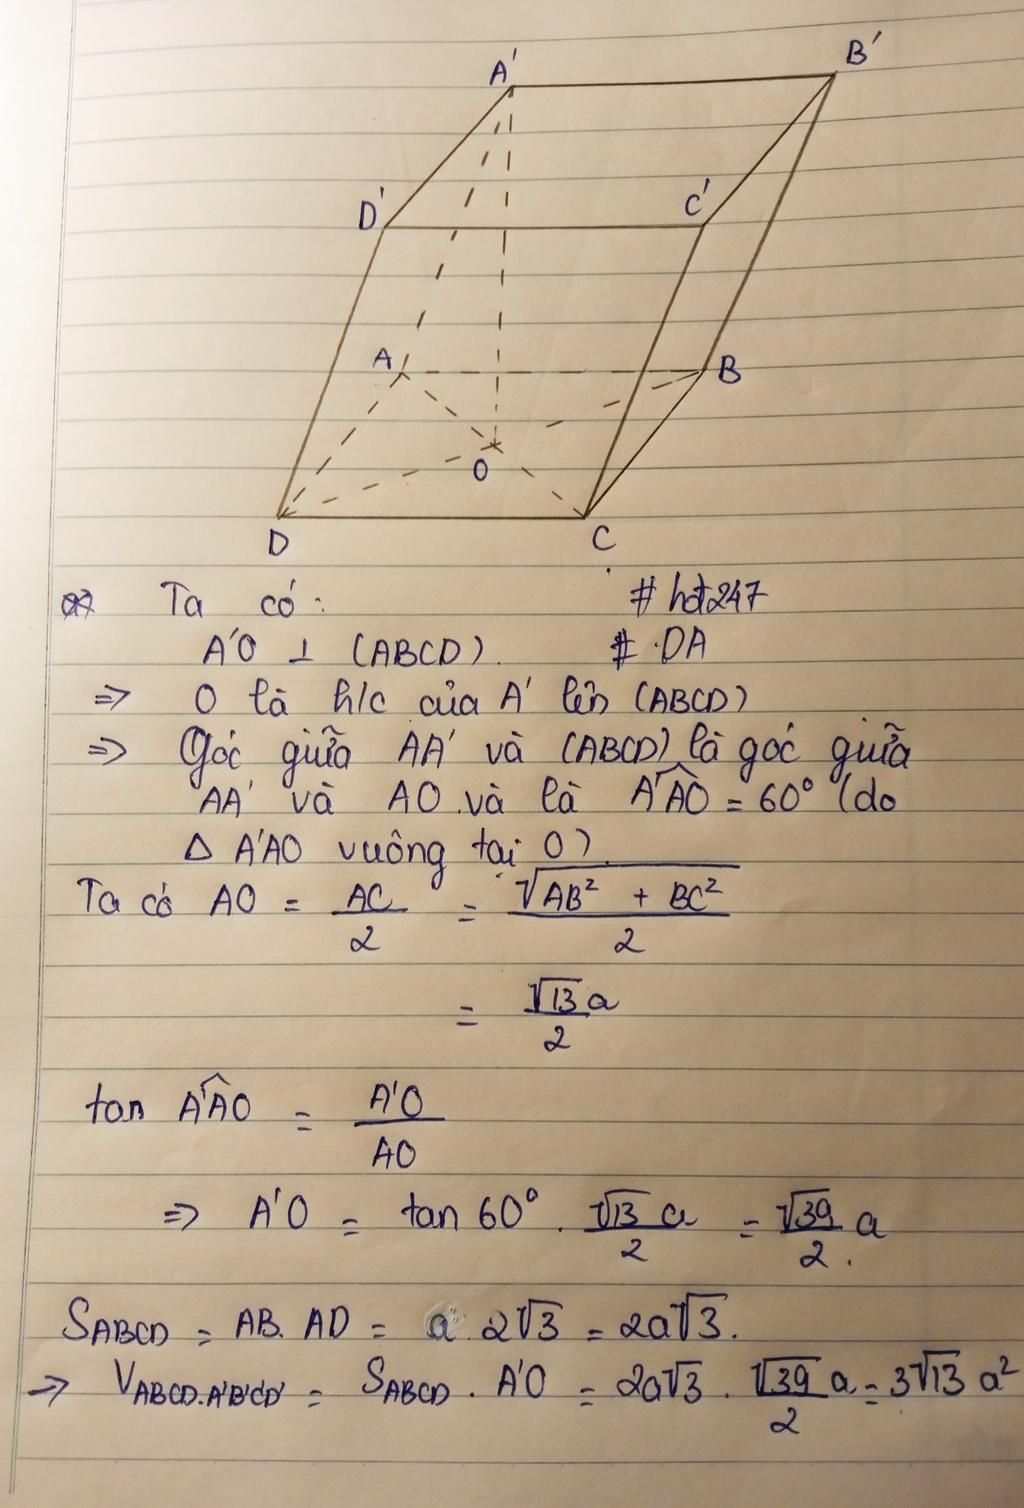 A'
B'
D'
C'
A
B
O
D
C
Ta có: #hđ247
A'O ⊥ (ABCD). # DA
=> O là h/c của A' lên (ABCD)
=> Góc giữa AA' và (ABCD) là góc giữa
AA' và AO và là \widehat{A'AO} = 60° (do
Δ A'AO vuông tại O)
Ta có AO = AC/2 = √(AB² + BC²)/2
= √13a/2
tan \widehat{A'AO} = A'O/AO
=> A'O = tan 60° . √13 a/2 = √39/2 a.
S_ABCD = AB. AD = a. 2√3 = 2a√3.
=> V_ABCD.A'B'C'D' = S_ABCD . A'O = 2a√3 . √39/2 a = 3√13 a²